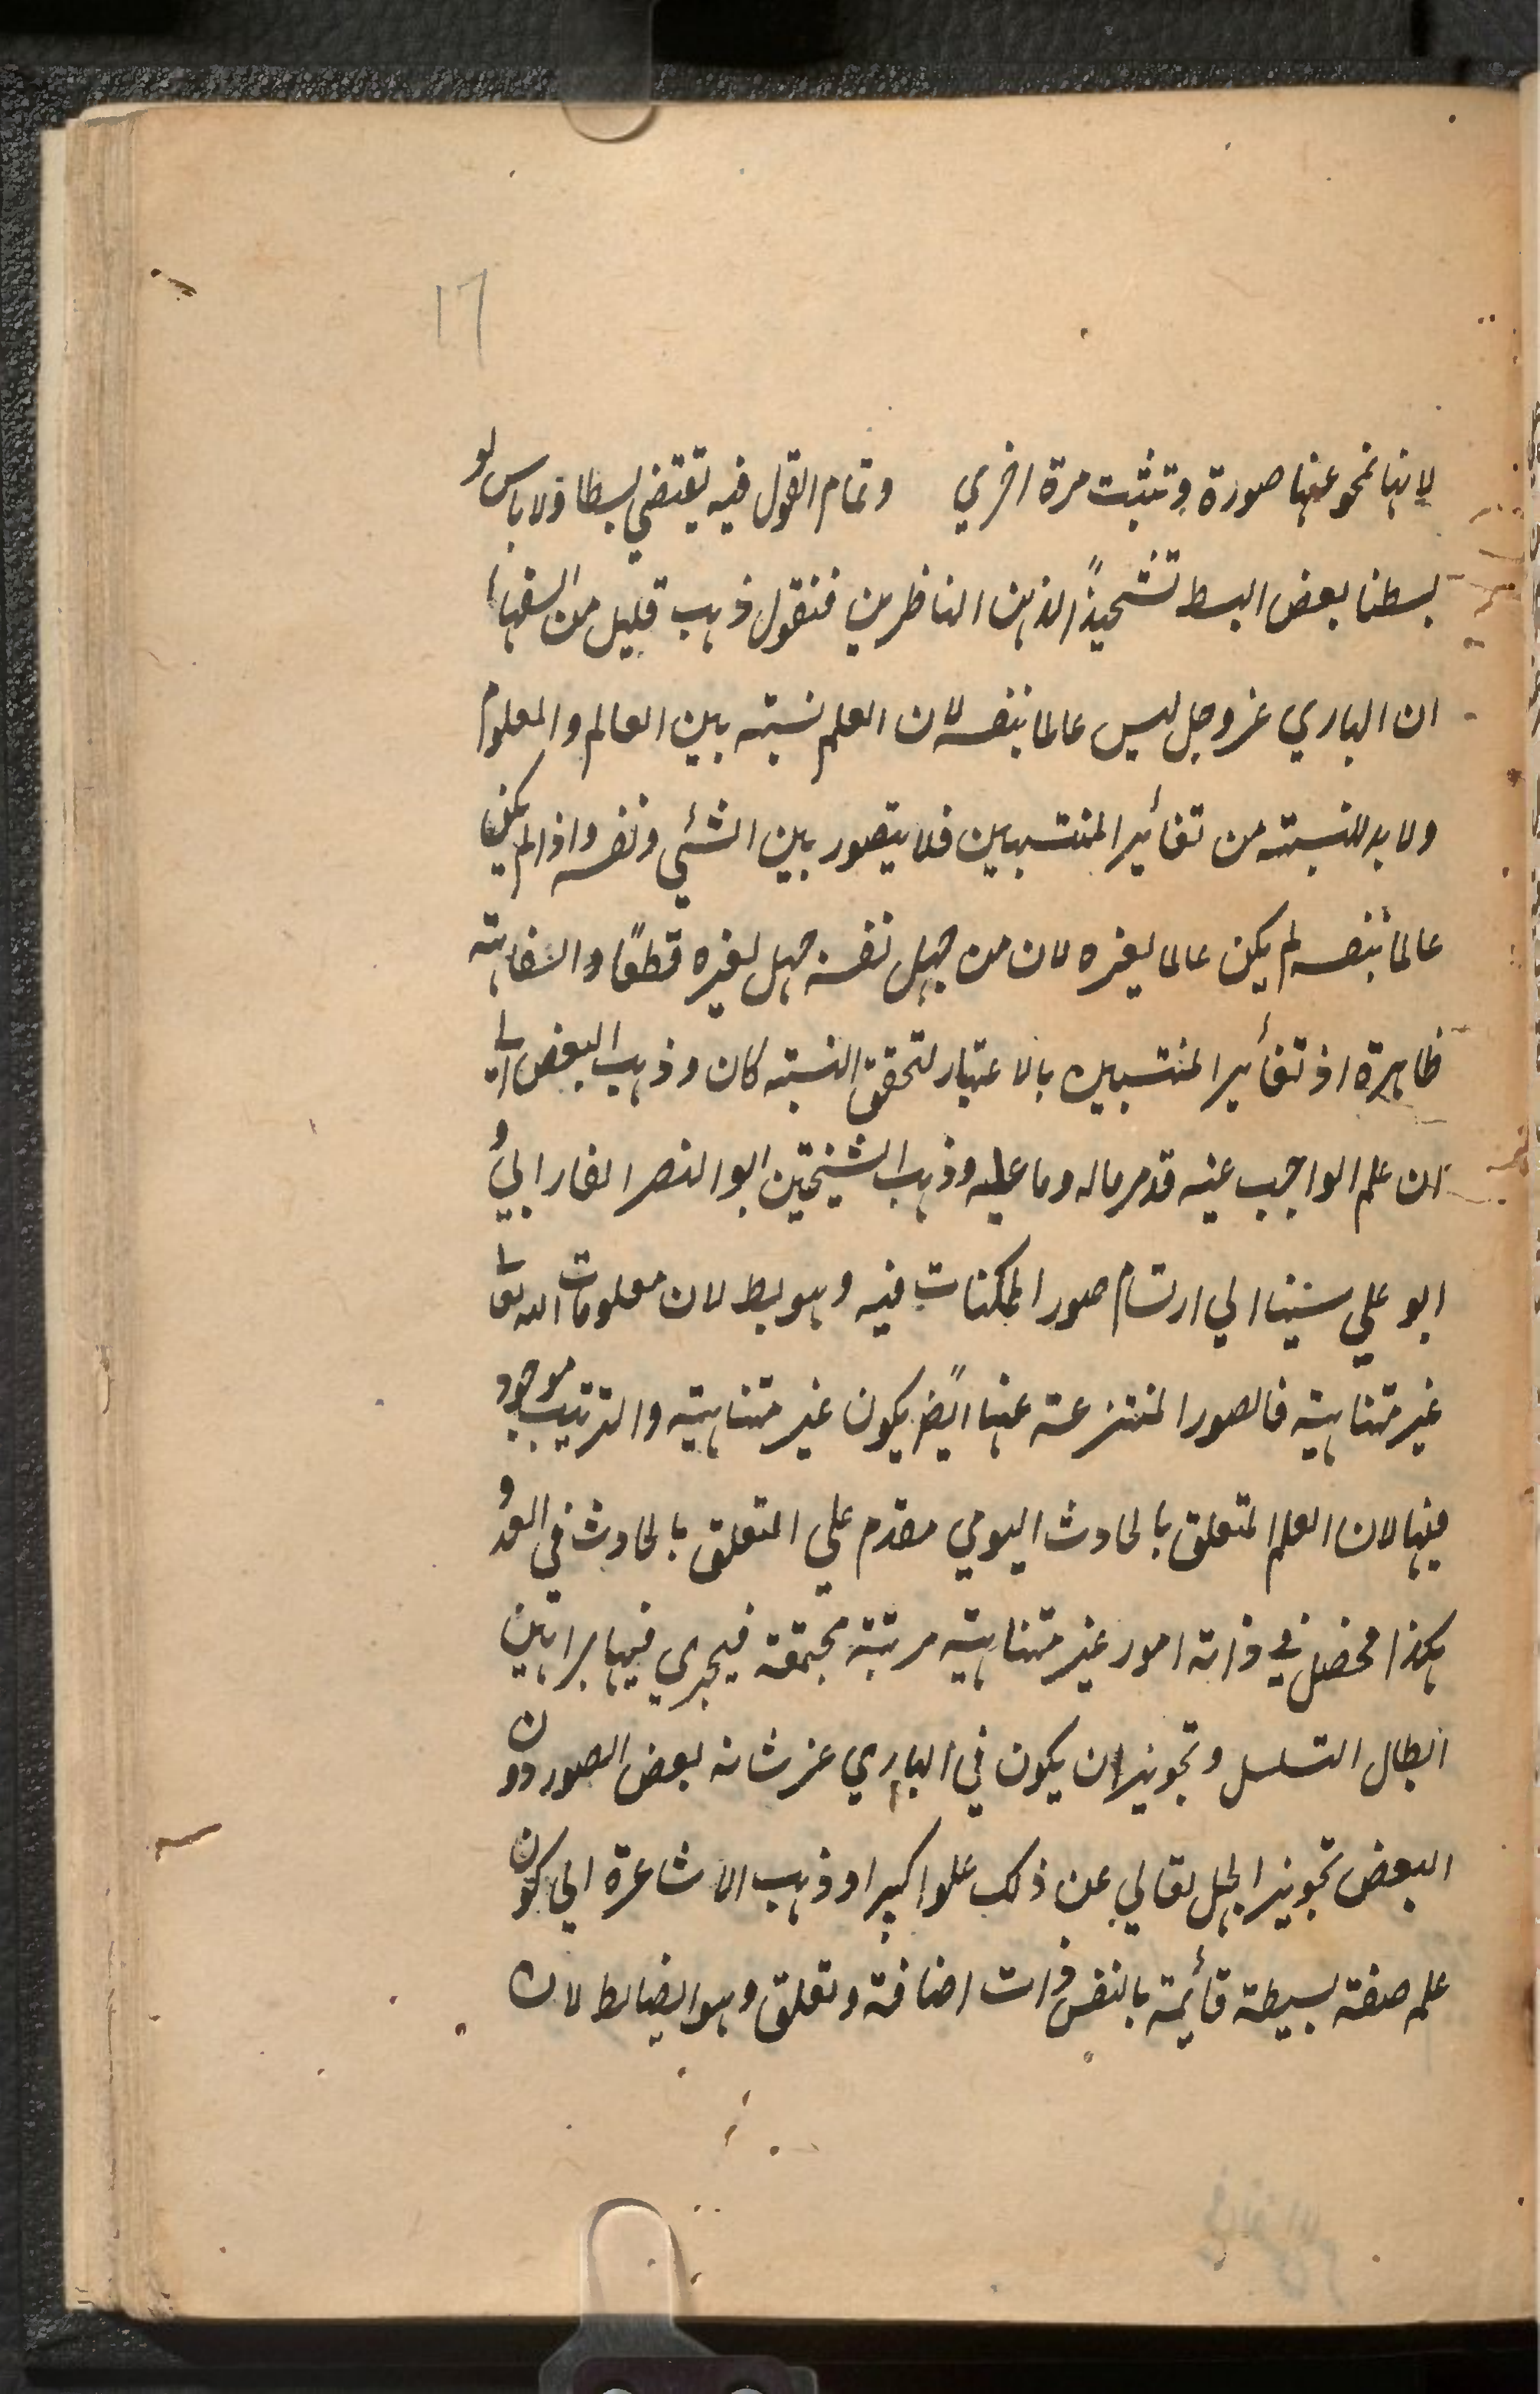 ١٦
لانها تمحو عنها صورة وتثبت مرة اخري وتمام القول فيه يقتضي بسطا ولا باس لو
بسطنا بعض البسط تشحيذاً لذهن الناظرين فنقول ذهب قليل من السفهاء
ان الباري عز وجل ليس عالما بنفسه لان العلم نسبته بين العالم والمعلوم
ولا بد للنسبته من تغائير المنتسبين فلا يتصور بين الشئي ونفسه واذا لم يكن
عالما بنفسه لم يكن عالما لغيره لان من جهل نفسه جهل لغيره قطعًا والسفاهته
ظاهرة اذ تغائير المنتسبين بالاعتبار لتحقق النسبته كان وذهب البعض الي
ان علم الواجب عينه قد مر ماله وما عليه وذهب الشيخين ابو النصر الفارابي و
ابو علي سينا الي ارتسام صور الممكنات فيه وهو بط لان معلومات الله تعا
غير متناهية فالصور المنتزعته عنها ايضً يكون غير متناهيته والترتيب موجود
فيها لان العلم المتعلق بالحادث اليومي مقدم علي المتعلق بالحادث في الغد و
هكذا فحصل في ذاته امور غير متناهيته مرتبة مجتمعة فيجري فيها براهين
ابطال التسلسل وتجويز ان يكون في الباري عز شانه بعض الصور دون
البعض تجويز الجهل تعالي عن ذلك علوا كبيرا وذهب الاشاعرة الي كون
علمه صفته بسيطة قائمة بالنفس ذات اضافة وتعلق وهو ايضا بط لان